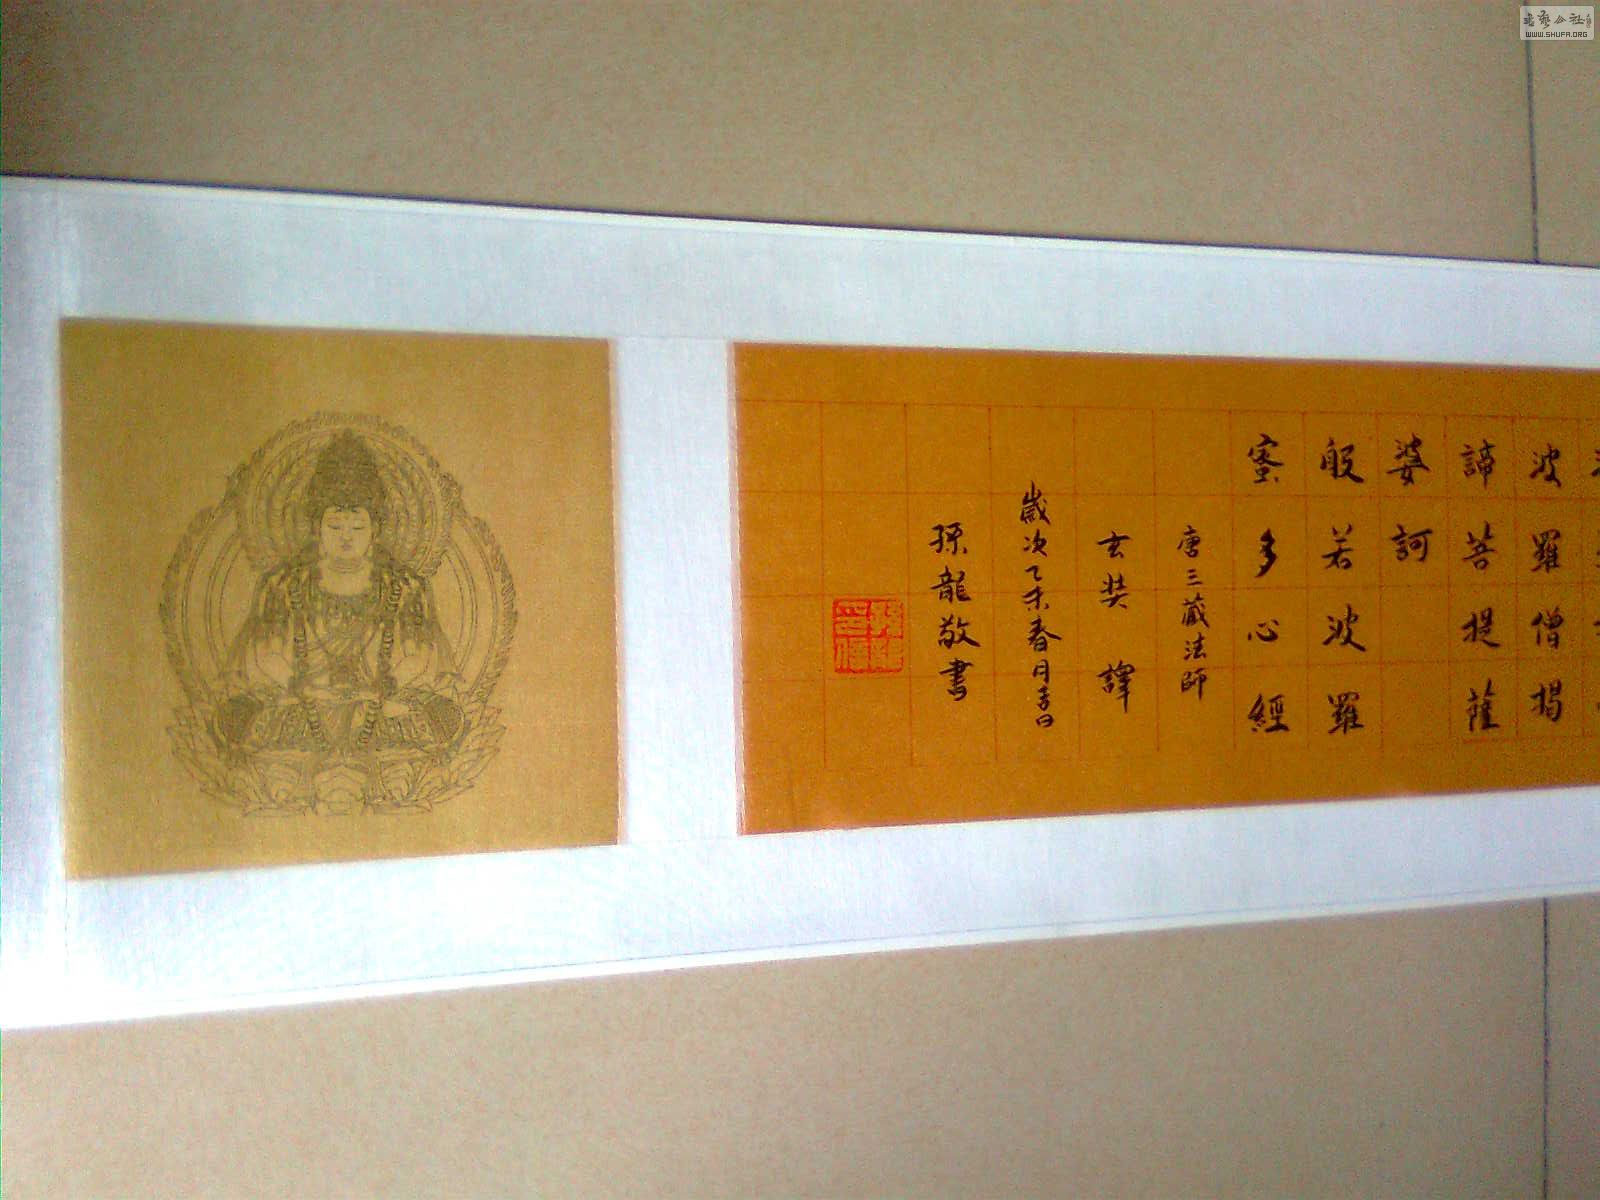 波羅僧揭
諦菩提薩
婆訶
般若波羅
蜜多心經
唐三藏法師
玄奘 譯
歲次乙未春月吉日
孫龍敬書
書藝公社
WWW.SHUFA.ORG